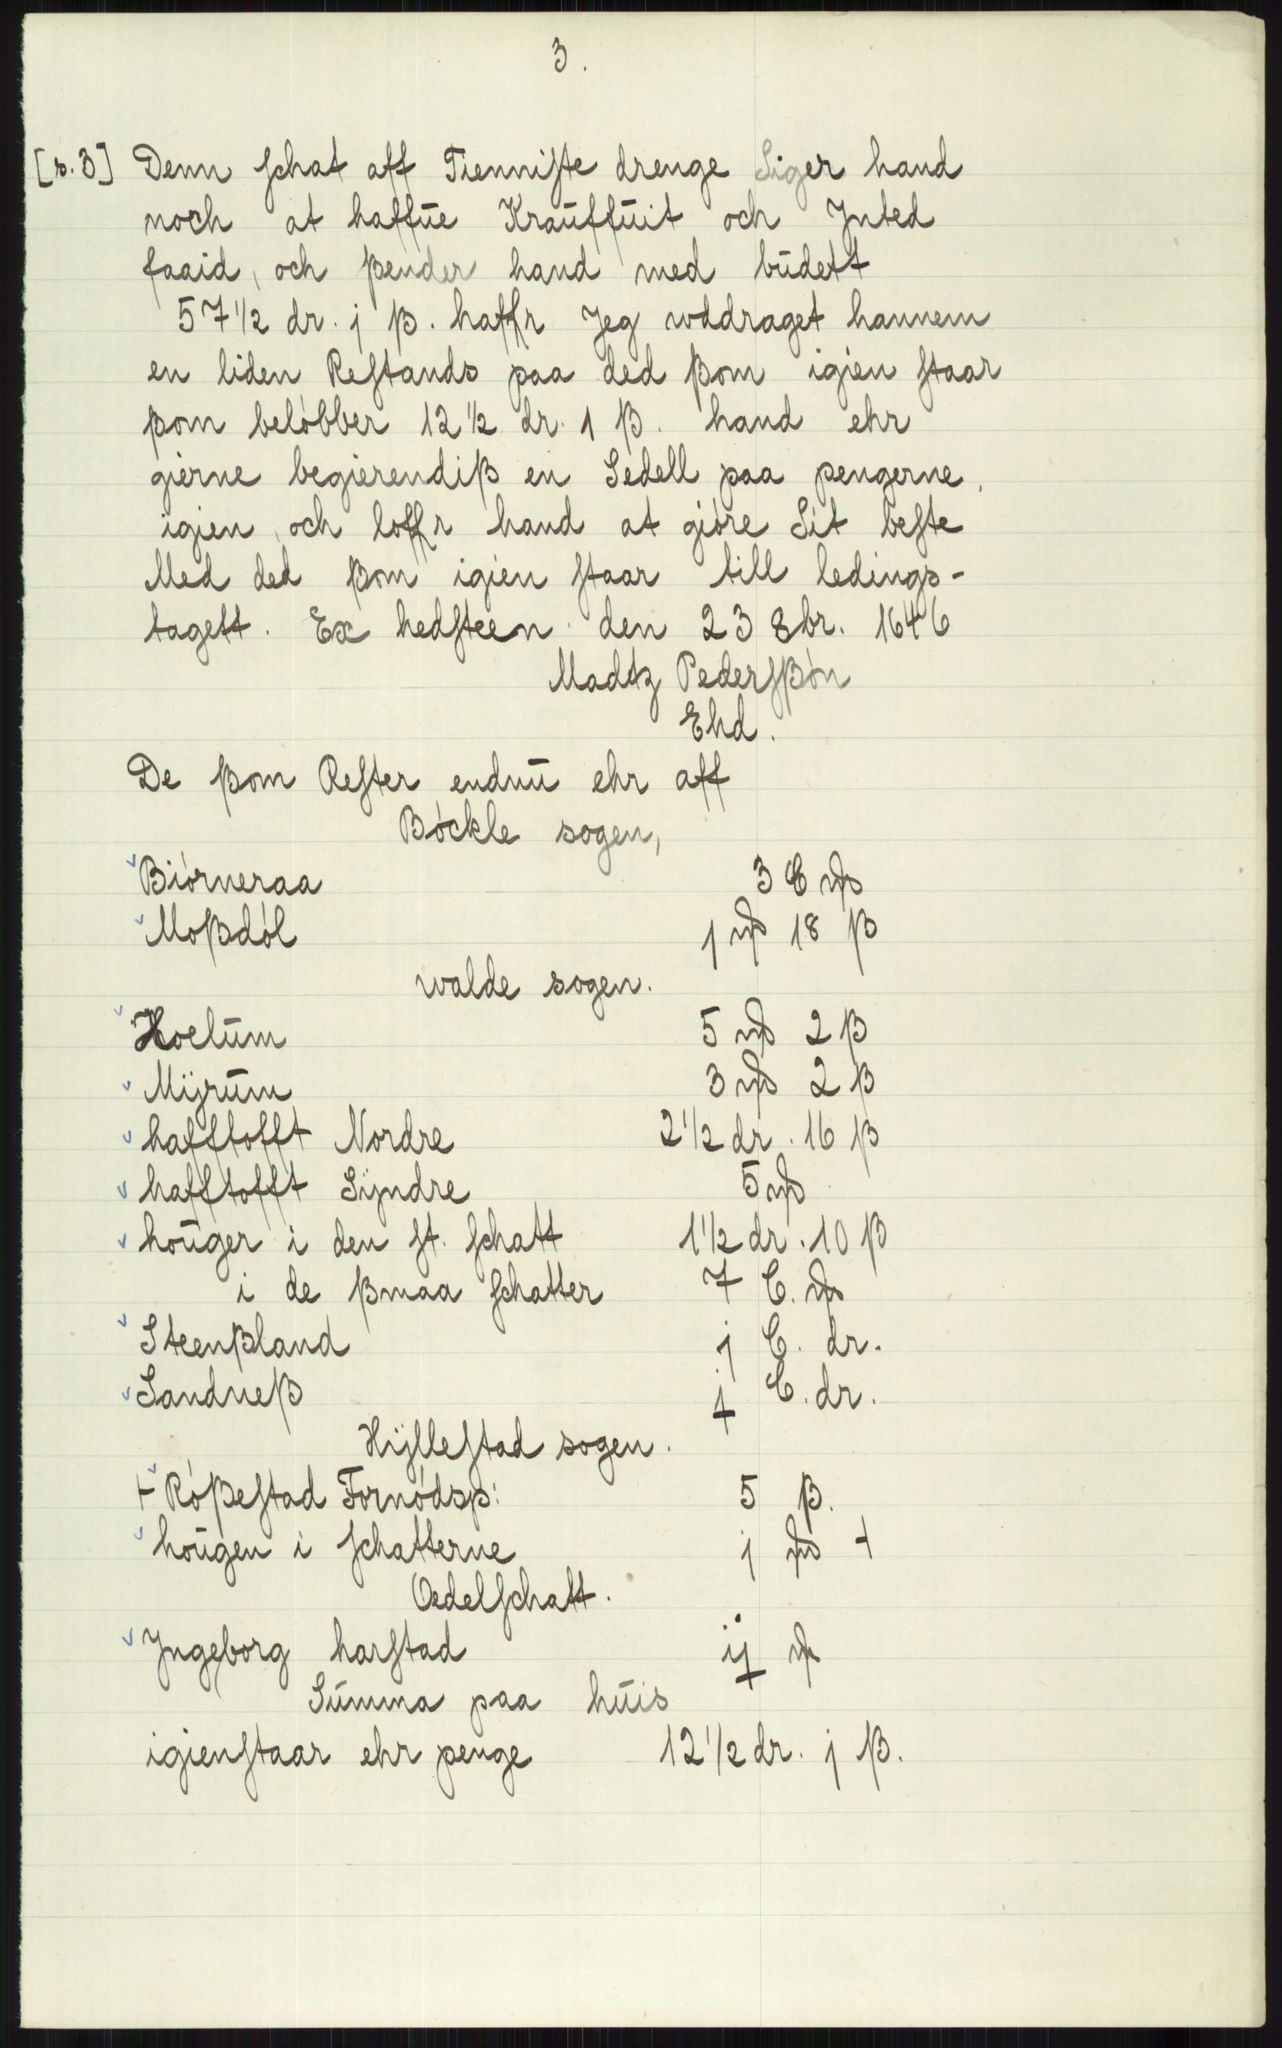 3.
[s.3] Denn schat aff Tienniste drenge Siger hand
noch at haffue Krauffuit och Jnted
faaid, och ßender hand med budett
57 1/2 dr. j ß. haffr Jeg wddraget hannem
en liden Restands paa ded ßom igien staar
ßom beløbber 12 1/2 dr. 1 ß. hand ehr
gierne begierendiß en Sedell paa pengerne,
igien, och loffr hand at giøre Sit beste
Med ded ßom igien staar till ledings-
tagett. Ex hedsteen den 23 8br. 1646
Madtz Pedersßøn
Ehd.
De ßom Rester endnu ehr aff
Bøckle sogen,
Biørneraa 3 C
Moßdøl 1 18 ß
walde sogen.
Hoelum 5 2 ß
Mÿrum 3 2 ß
hafftofft Nordre 2 1/2 dr. 16 ß
hafftofft Sÿndre 5
houger i den st. schatt 1 1/2 dr. 10 ß
i de ßmaa schatter 7 C.
Steenßland j C. dr.
Sandneß j C. dr.
Hÿllestad sogen.
+ Røßestad Fornødsp: 5 ß.
hougen i schatterne j +
Oedelschatt.
Jngeborg harstad ij
Summa paa huis
igienstaar ehr penge 12 1/2 dr. j ß.